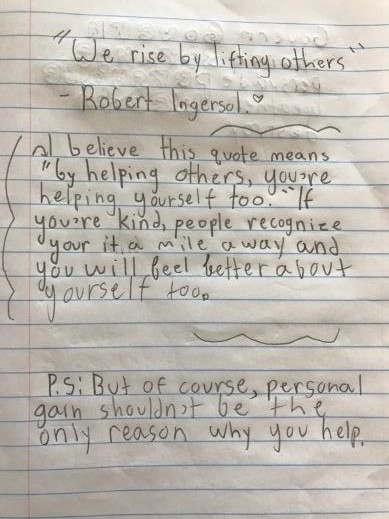 "We rise by lifting others"
- Robert Ingersol.
I believe this quote means
"by helping others, you're
helping yourself too." If
you're kind, people recognize
your it a mile away and
you will feel better about
yourself too.
P.S: But of course, personal
gain shouldn't be the
only reason why you help.